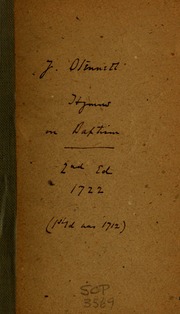 J. Stennett
Hymns
on Baptism
2nd Ed
1722
(1st Ed was 1712)
SCP
3569